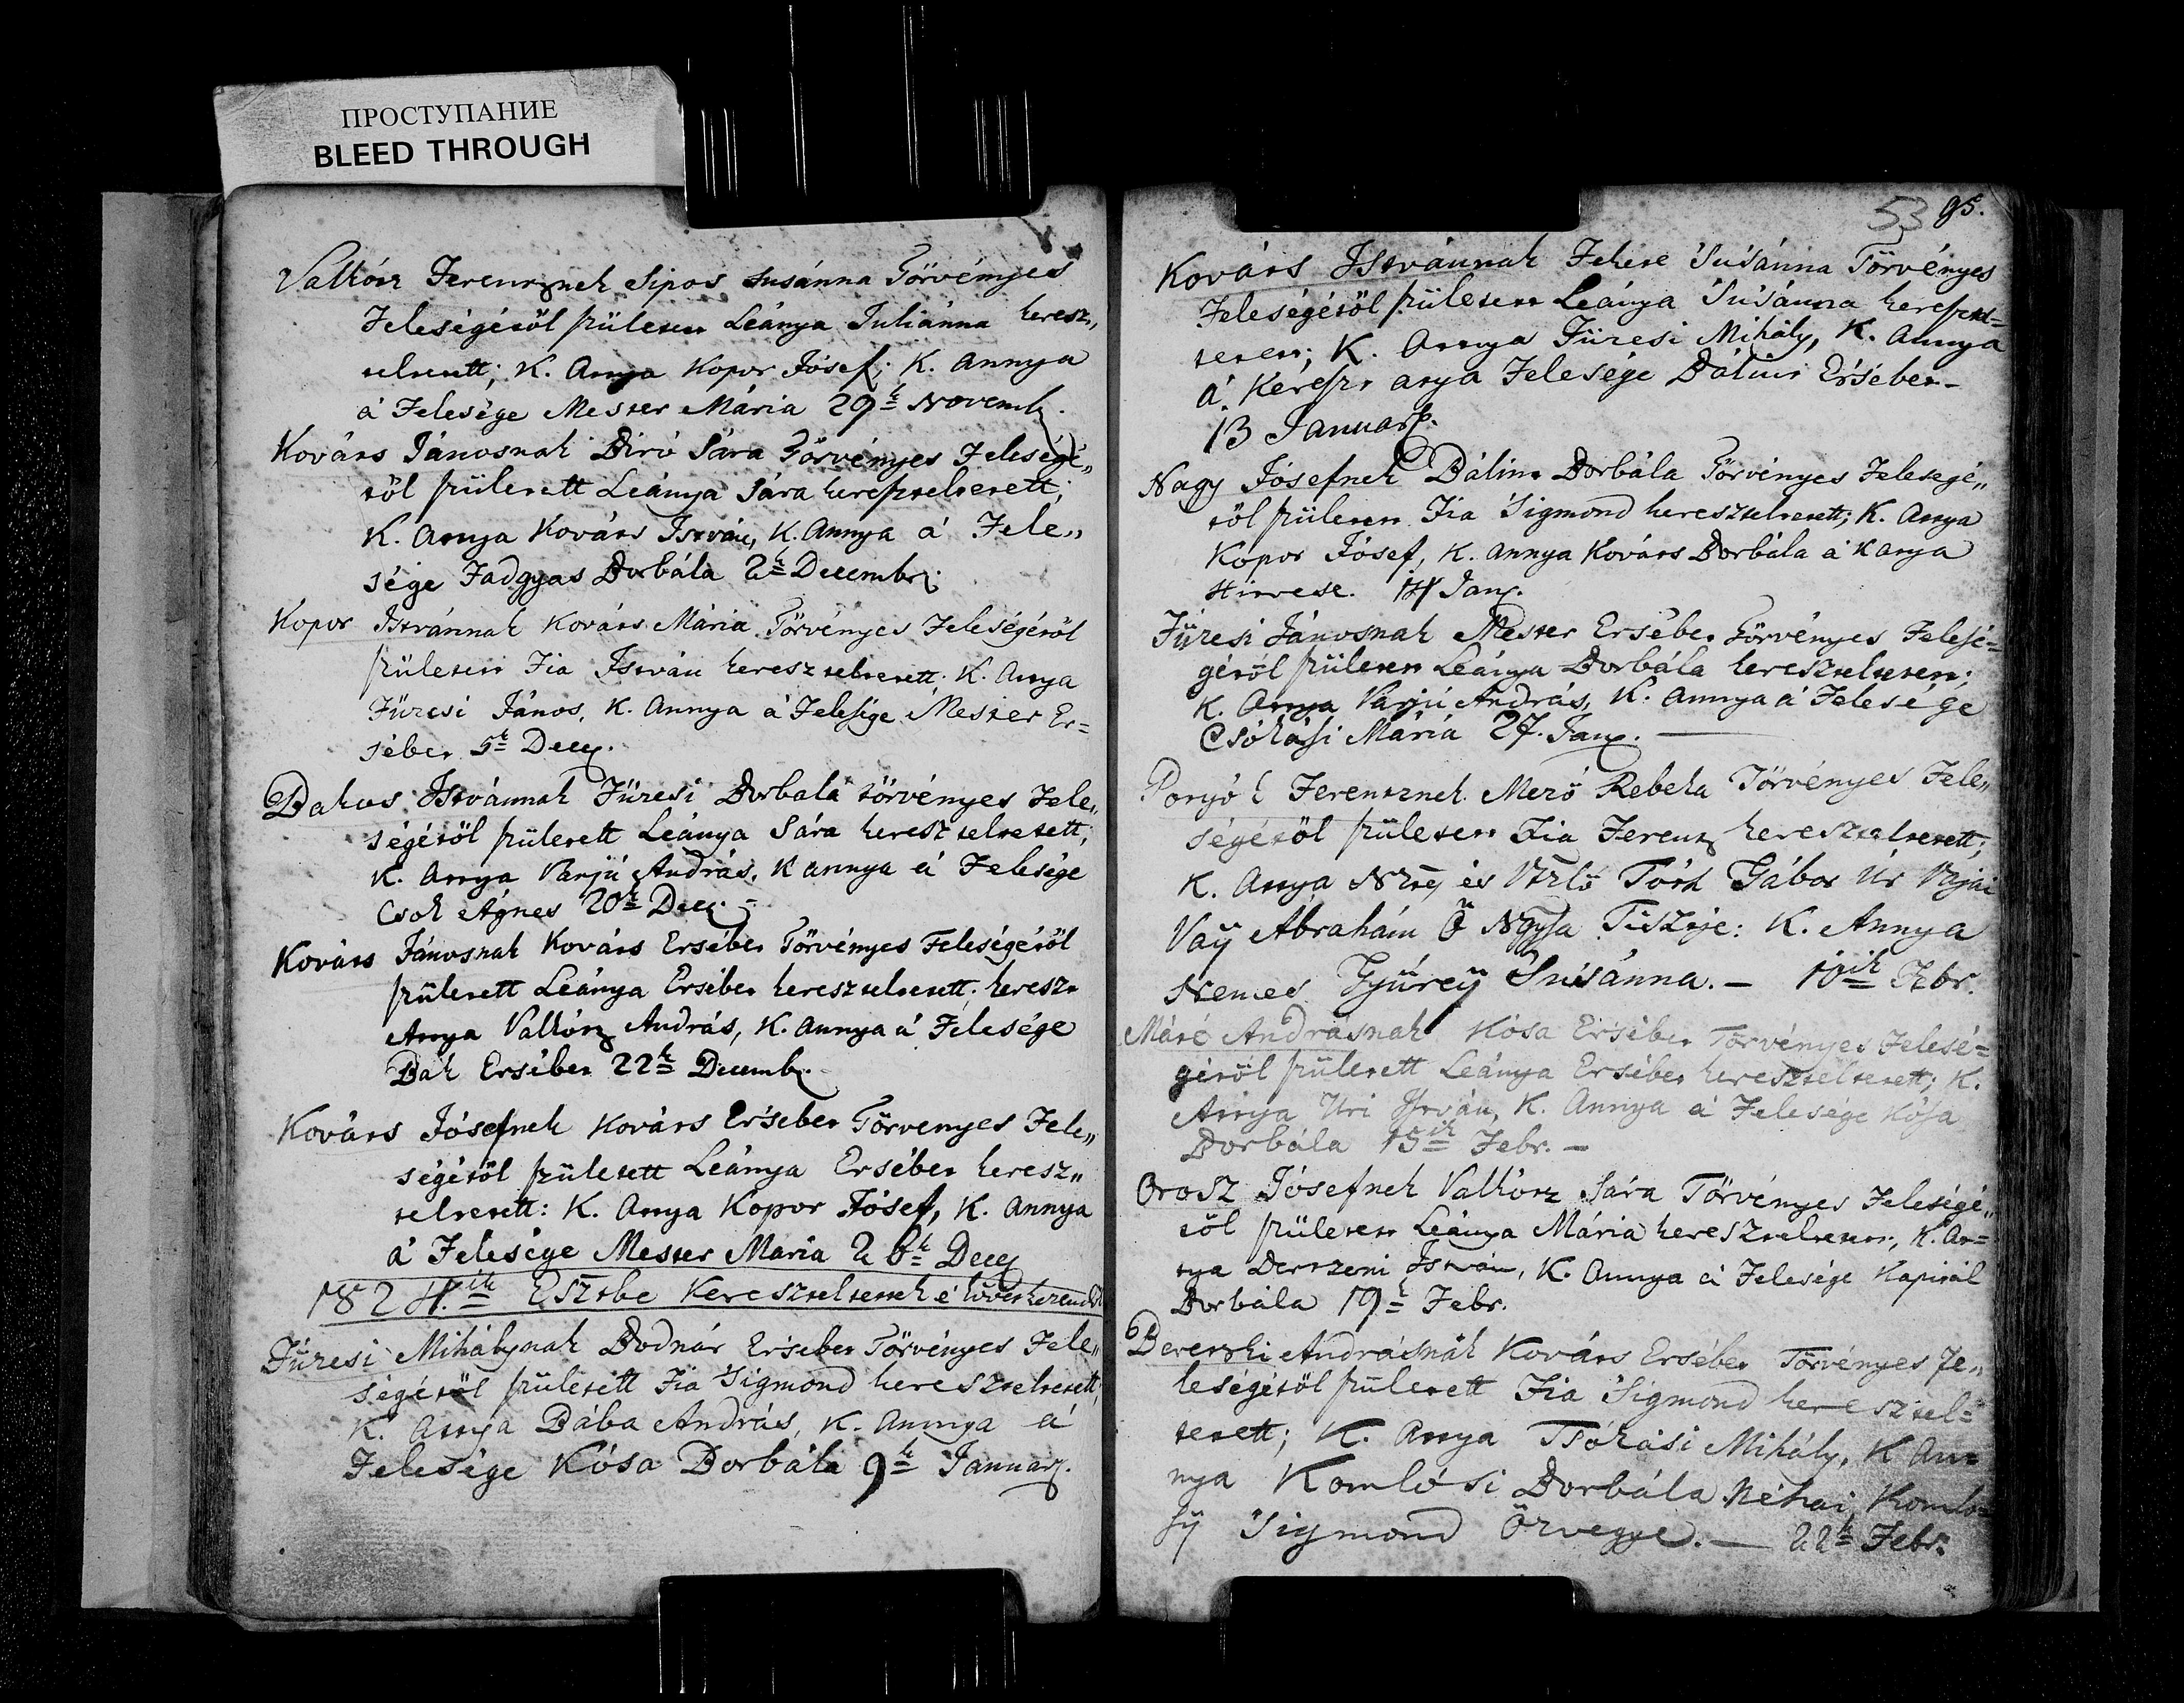 ПРОСТУПАНИЕ
BLEED THROUGH
Valkócz Ferencznek Sipos Susánna Törvényes
Feleségétöl született Leánya Juliánna keresz„
teltetett; K. Attya Kopor Jósef; K. Annya
á Felesége Mester Mária 29k Novemb.
Kováts Jánosnak Biró Sára Törvényes Feleségé„
töl született Leánya Sára kereszteltetett;
K. Attya Kováts István, K. Annya á Fele„
sége Fadgyas Borbála 2k Decembr.
Kopor Istvánnak Kováts Mária Törvényes Feleségétöl
született Fia István kereszteltetett. K. Attya
Füzesi János, K. Annya á Felesége Mester Er=
sébet 5k Decz.
Bakos Istvánnak Füzesi Borbala törvényes Fele„
ségétöl született Leánya Sára kereszteltetett;
K. Attya Varjú András, K annya á Felesége
Csok Ágnes 20k Decz. -
Kováts Jánosnak Kováts Ersébet Törvényes Feleségétöl
született Leánya Ersébet kereszteltetett. kereszt
Attya Valkócz András, K. Annya á Felesége
Bak Ersébet 22k Decemb.
Kováts Jósefnek Kováts Ersebet Törvenyes Fele„
ségétöl született Leánya Ersébet keresz„
teltetett: K. Attya Kopor Jósef, K. Annya
á Felesége Mester Maria 26k Decz
1824.ik Esztbe Kereszteltettek é következendők
Füzesi Mihálynak Bodnár Ersebet Törvényes Fele„
ségétöl született Fia Sigmond kereszteltetett;
K. Attya Bába András, K. Annya á
Felesége Kósa Borbála 9k Januar.
53 95.
Kováts Istvánnak Fekete Susánna Törvényes
Feleségétöl született Leánya Susánna keresztel=
tetett; K. Attya Füzesi Mihály, K. Annya
á Kereszt atya Felesége Bálint Ersébet -
13 Januar.
Nagy Jósefnek Bálint Borbála Törvényes Feleségé„
töl született Fia Sigmond kereszteltetett; K. Attya
Kopor Jósef, K. Annya Kováts Borbála á K atya
Hitvese. 14 Jan.
Füzesi Jánosnak Mester Ersébet Törvényes Felesé=
gétöl született Leánya Borbála kereszteltetett;
K. Attya Varjú András, K. Annya á Felesége
Csókási Mária 27. Jan. -
Ponyók Ferentznek Mező Rebeka Törvényes Fele„
ségétöl született Fia Ferentz kereszteltetett;
K. Attya és Vitzlő Tóth Gábor Úr Vajai
Vaÿ Ábrahám Ő Ngysa Tisztje: K. Annya
Nemes Gyüreÿ Susánna. - 10ik Febr.
Máté Andrásnak Kósa Ersébet Törvényes Felesé=
gétöl született Leánya Ersébet kereszteltetett; K.
Attya Uri István, K. Annya á Felesége Kósa
Borbála 15ik Febr. -
Orosz Jósefnek Valkócz Sára Törvényes Feleségé„
töl született Leánya Mária kereszteltetett, K. At=
tya Dertzeni István, K. Annya á Felesége Kapitál
Borbála 19k Febr.
Beretzki Andrásnak Kováts Ersébet Törvényes Fe„
leségétöl született Fia Sigmond keresztel=
tetett; K. Attya Tsókási Mihály, K An=
nya Komlósi Borbála Néhai Komló=
sÿ Sigmond Özvegye. - 22k Febr.